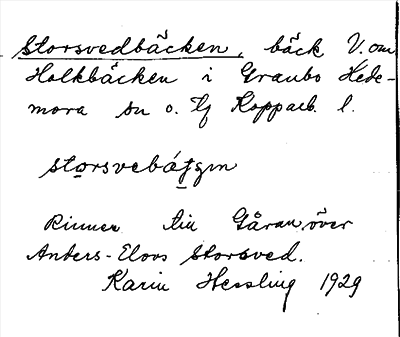 Storsvedbäcken, bäck V. om
Holkbäcken i Graubo Hede-
mora sn o. tg Kopparb. l.
storsvebáʈʂʂən
Rinner till Gåran, över
Anders-Elovs Storsved.
Karin Hessling 1929